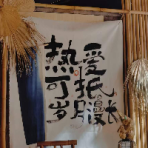 热愛
可抵
岁月漫长